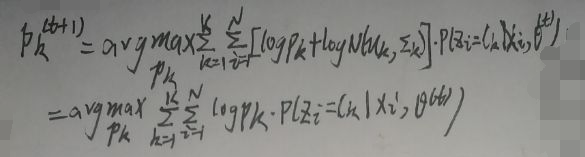 p_k^{(t+1)} = argmax_{p_k} Σ_{k=1}^{K} Σ_{i=1}^{N} [log p_k + log N(μ_k, Σ_k)] · P(z_i = C_k | x_i, θ^{(t)})
= argmax_{p_k} Σ_{k=1}^{K} Σ_{i=1}^{N} log p_k · P(z_i = C_k | x_i, θ^{(t)})